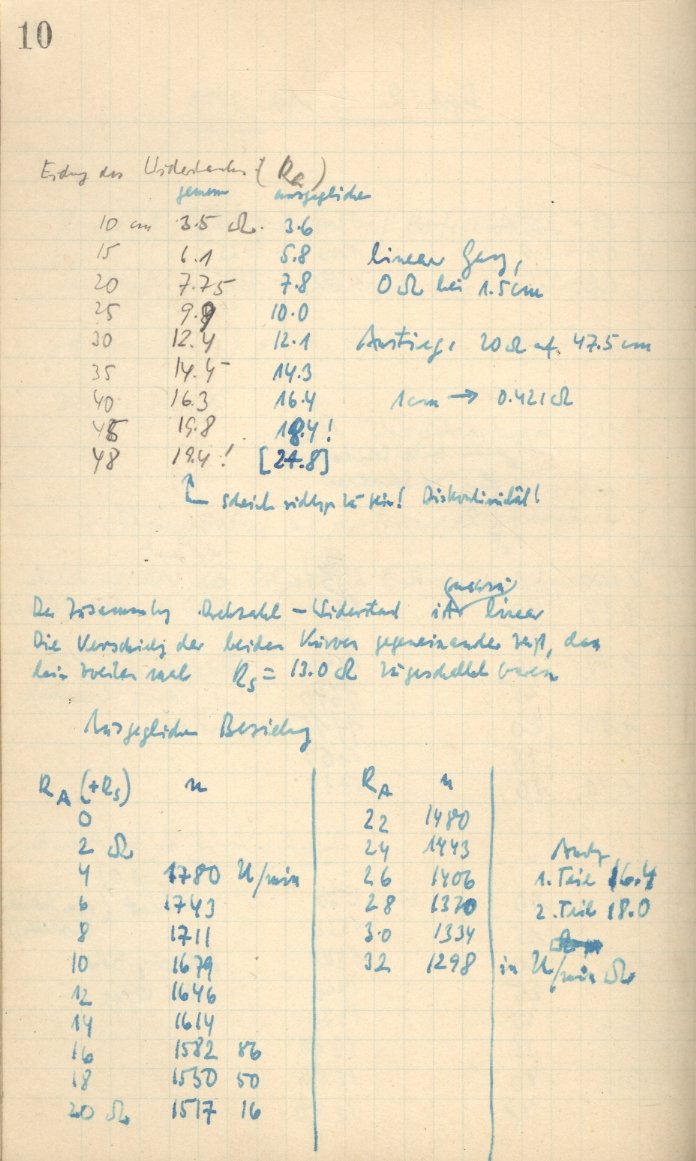 10
Eichung des Widerstandes (R_A)
gemessen ausgeglichen
10 cm 3.5 Ω 3.6
15 6.1 5.8
20 7.75 7.8
25 9.9 10.0
30 12.4 12.1
35 14.4 14.3
40 16.3 16.4
45 19.8 18.4!
48 19.4! [24.8]
linearer Gang,
0 Ω bei 1.5 cm
Anstieg: 20 Ω auf 47.5 cm
1 cm → 0.421 Ω
scheint richtig zu sein! Diskontinuität!
Der Zusammenhang Drehzahl – Widerstand ist linear
Die Verschiebung der beiden Kurven gegeneinander zeigt, dass
beim zweiten mal R_S = 13.0 Ω zugeschaltet waren
Ausgeglichene Beziehung
R_A (+R_S) n
0
2 Ω
4 1780 U/min
6 1743
8 1711
10 1679
12 1646
14 1614
16 1582 86
18 1550 50
20 Ω 1517 16
R_A n
22 1480
24 1443
26 1406
28 1370
30 1334
32 1298 in U/min Ω
1. Teil 16.4
2. Teil 18.0